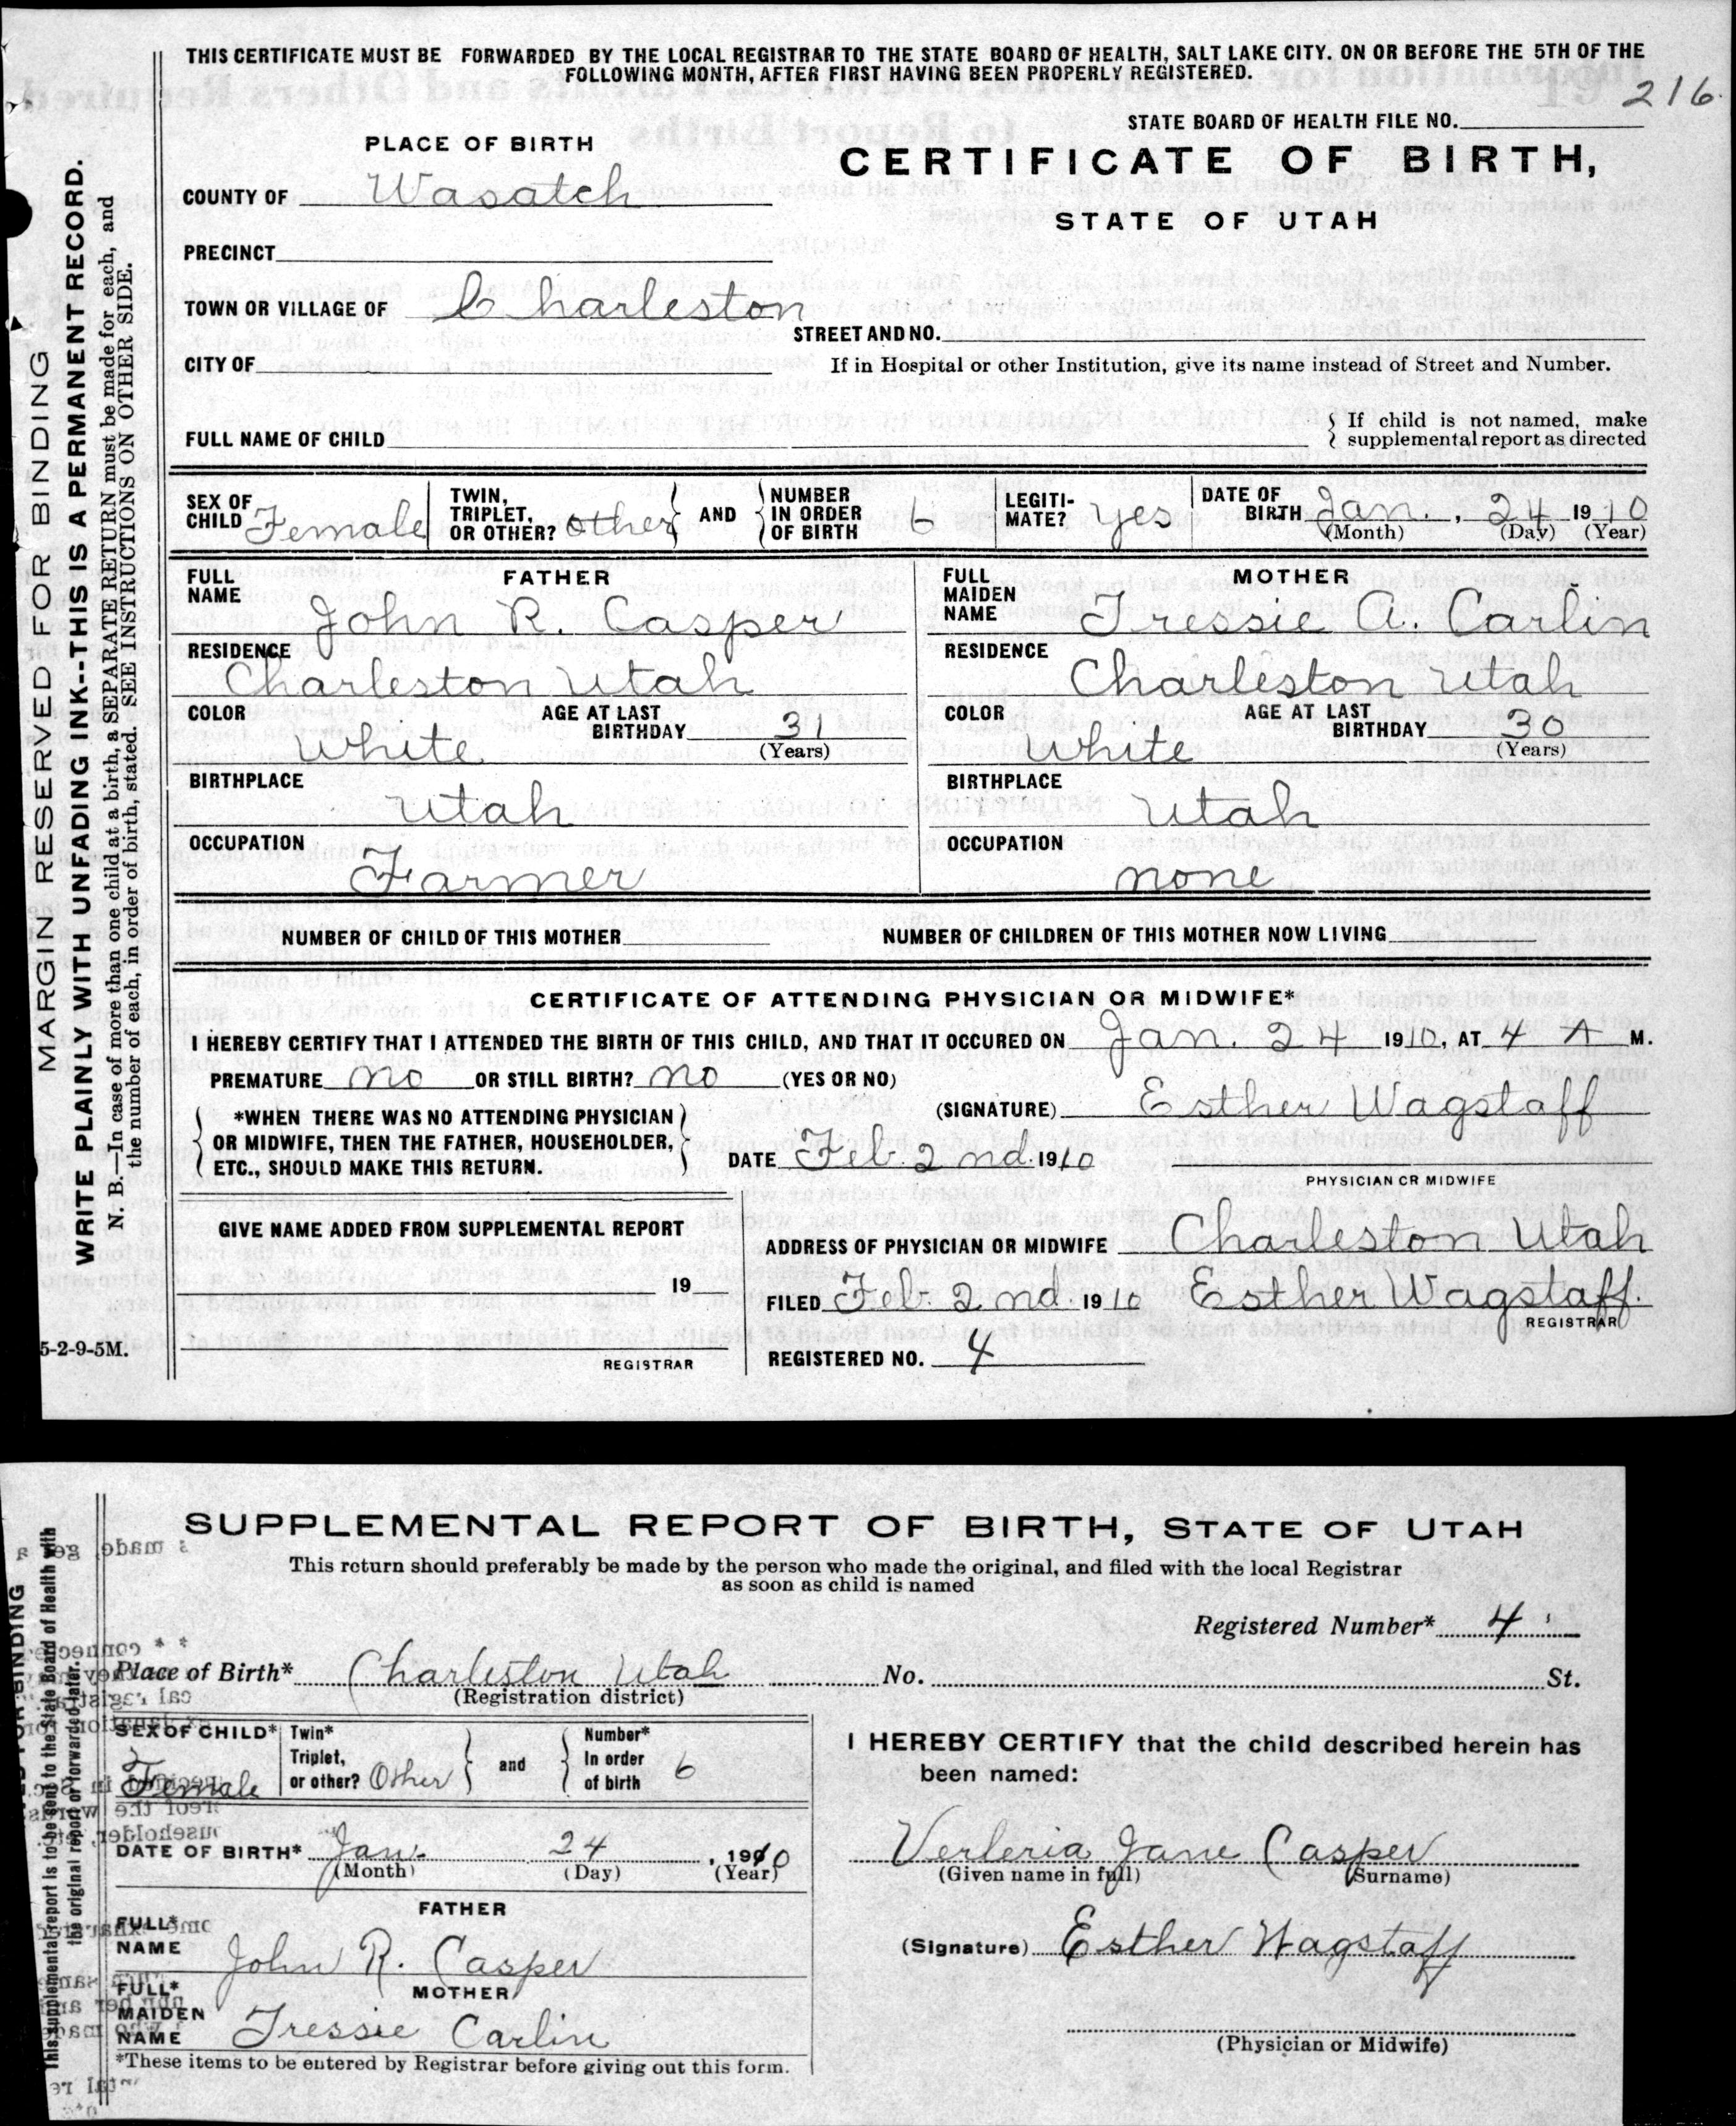 THIS CERTIFICATE MUST BE FORWARDED BY THE LOCAL REGISTRAR TO THE STATE BOARD OF HEALTH, SALT LAKE CITY. ON OR BEFORE THE 5TH OF THE
FOLLOWING MONTH, AFTER FIRST HAVING BEEN PROPERLY REGISTERED.
216
STATE BOARD OF HEALTH FILE NO.
PLACE OF BIRTH
CERTIFICATE OF BIRTH,
COUNTY OF Wasatch
STATE OF UTAH
PRECINCT
TOWN OR VILLAGE OF Charleston
STREET AND NO.
CITY OF
If in Hospital or other Institution, give its name instead of Street and Number.
FULL NAME OF CHILD
{ If child is not named, make
supplemental report as directed
SEX OF CHILD Female
TWIN, TRIPLET, OR OTHER? other } AND { NUMBER IN ORDER OF BIRTH 6
LEGITI-MATE? yes
DATE OF BIRTH Jan., 24 1910
(Month) (Day) (Year)
FATHER
FULL NAME John R. Casper
RESIDENCE
Charleston Utah
COLOR White AGE AT LAST BIRTHDAY 31
(Years)
BIRTHPLACE
Utah
OCCUPATION
Farmer
MOTHER
FULL MAIDEN NAME Tressie A. Carlin
RESIDENCE
Charleston Utah
COLOR White AGE AT LAST BIRTHDAY 30
(Years)
BIRTHPLACE
Utah
OCCUPATION
none
NUMBER OF CHILD OF THIS MOTHER NUMBER OF CHILDREN OF THIS MOTHER NOW LIVING
CERTIFICATE OF ATTENDING PHYSICIAN OR MIDWIFE*
I HEREBY CERTIFY THAT I ATTENDED THE BIRTH OF THIS CHILD, AND THAT IT OCCURED ON Jan. 24 1910, AT 4 A M.
PREMATURE no OR STILL BIRTH? no (YES OR NO)
{ *WHEN THERE WAS NO ATTENDING PHYSICIAN
OR MIDWIFE, THEN THE FATHER, HOUSEHOLDER,
ETC., SHOULD MAKE THIS RETURN. }
(SIGNATURE) Esther Wagstaff
DATE Feb. 2nd. 1910
PHYSICIAN OR MIDWIFE
GIVE NAME ADDED FROM SUPPLEMENTAL REPORT
19
REGISTRAR
ADDRESS OF PHYSICIAN OR MIDWIFE Charleston Utah
FILED Feb. 2nd. 1910 Esther Wagstaff.
REGISTRAR
REGISTERED NO. 4
MARGIN RESERVED FOR BINDING
WRITE PLAINLY WITH UNFADING INK--THIS IS A PERMANENT RECORD.
N. B.—In case of more than one child at a birth, a SEPARATE RETURN must be made for each, and
the number of each, in order of birth, stated. SEE INSTRUCTIONS ON OTHER SIDE.
5-2-9-5M.
SUPPLEMENTAL REPORT OF BIRTH, STATE OF UTAH
This return should preferably be made by the person who made the original, and filed with the local Registrar
as soon as child is named
Registered Number* 4
Place of Birth* Charleston Utah No. St.
(Registration district)
SEX OF CHILD* Female
Twin* Triplet, or other? Other } and { Number* In order of birth 6
DATE OF BIRTH* Jan. 24, 1910
(Month) (Day) (Year)
FATHER
FULL* NAME John R. Casper
MOTHER
FULL* MAIDEN NAME Tressie Carlin
*These items to be entered by Registrar before giving out this form.
I HEREBY CERTIFY that the child described herein has
been named:
Verleria Jane Casper
(Given name in full) (Surname)
(Signature) Esther Wagstaff
(Physician or Midwife)
This supplemental report is to be sent to the State Board of Health with
the original report or forwarded later.